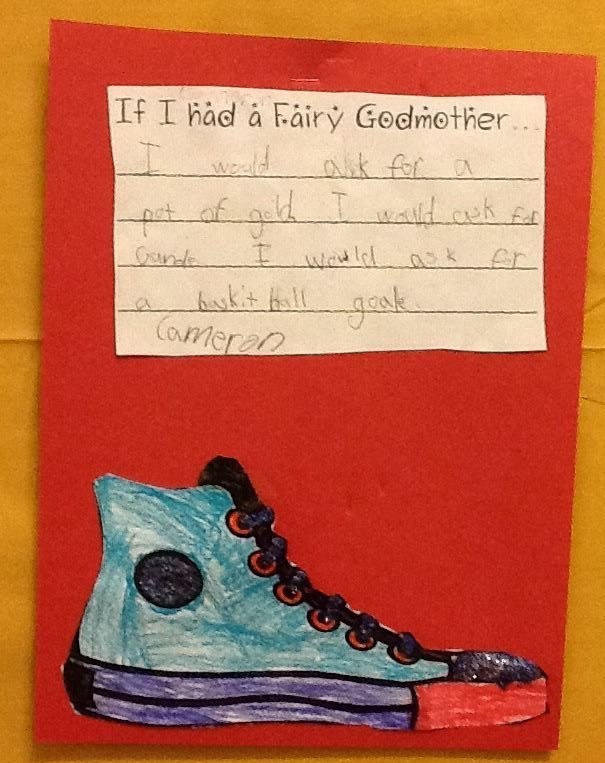 If I had a Fairy Godmother...
I would ask for a
pot of gold I would ask for
I would ask for
a baskit ball goale.
Cameron